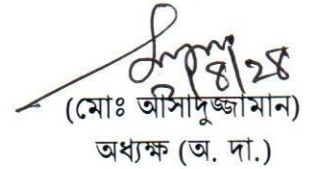 ৪/২৪
(মোঃ আসাদুজ্জামান)
অধ্যক্ষ (অ. দা.)